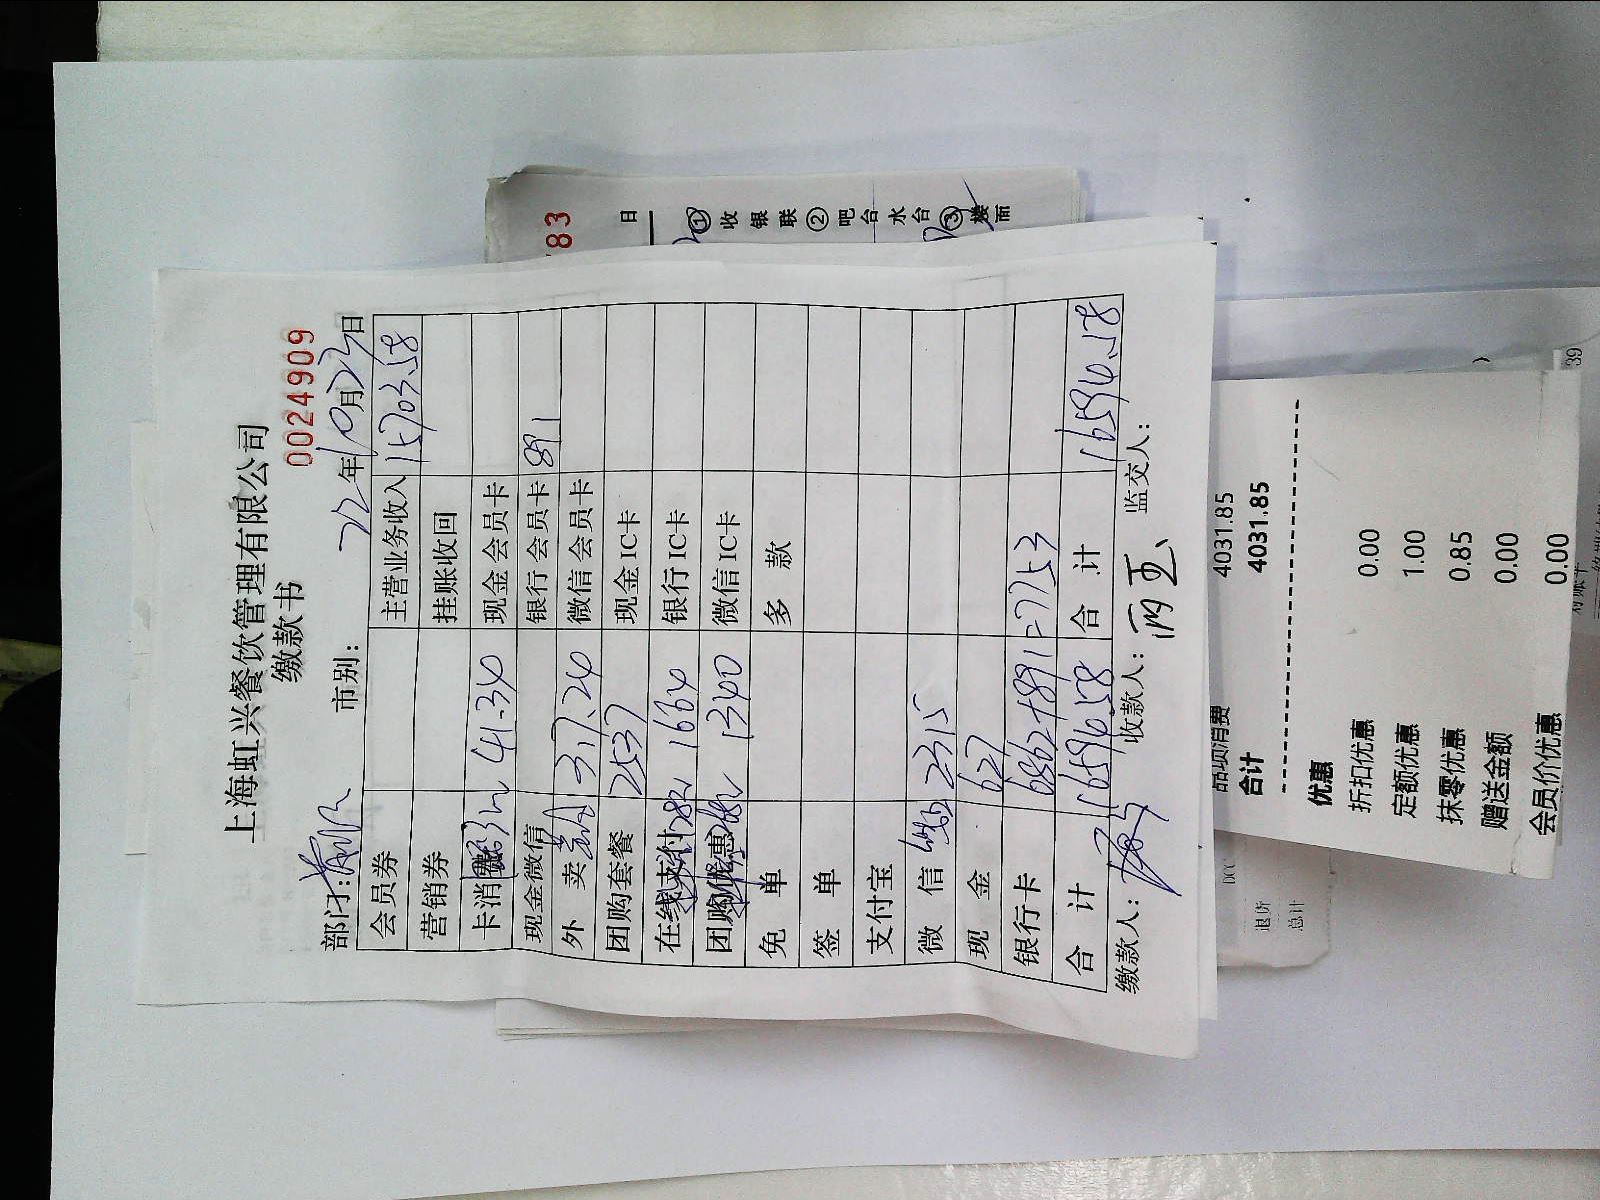 上海虹兴餐饮管理有限公司
缴款书
00024909
部门: 市别: 22年10月23日
会员券 主营业务收入 15703.58
营销券 挂账收回
卡消费 41.34 现金会员卡
现金微信 银行会员卡 891
外卖 317.24 微信会员卡
团购套餐 2537 现金IC卡
在线支付 1664 银行IC卡
团购优惠 1340 微信IC卡
免单 多款
签单
支付宝
微信 2315
现金 627
银行卡 6862+891=7753
合计 16594.58 合计 16594.58
缴款人: 收款人: 监交人:
83
日
① 收银联 ② 吧台水台 ③ 楼面
品项消费 4031.85
合计 4031.85
优惠
折扣优惠 0.00
定额优惠 1.00
抹零优惠 0.85
赠送金额 0.00
会员价优惠 0.00
DCC
退货
总计
39